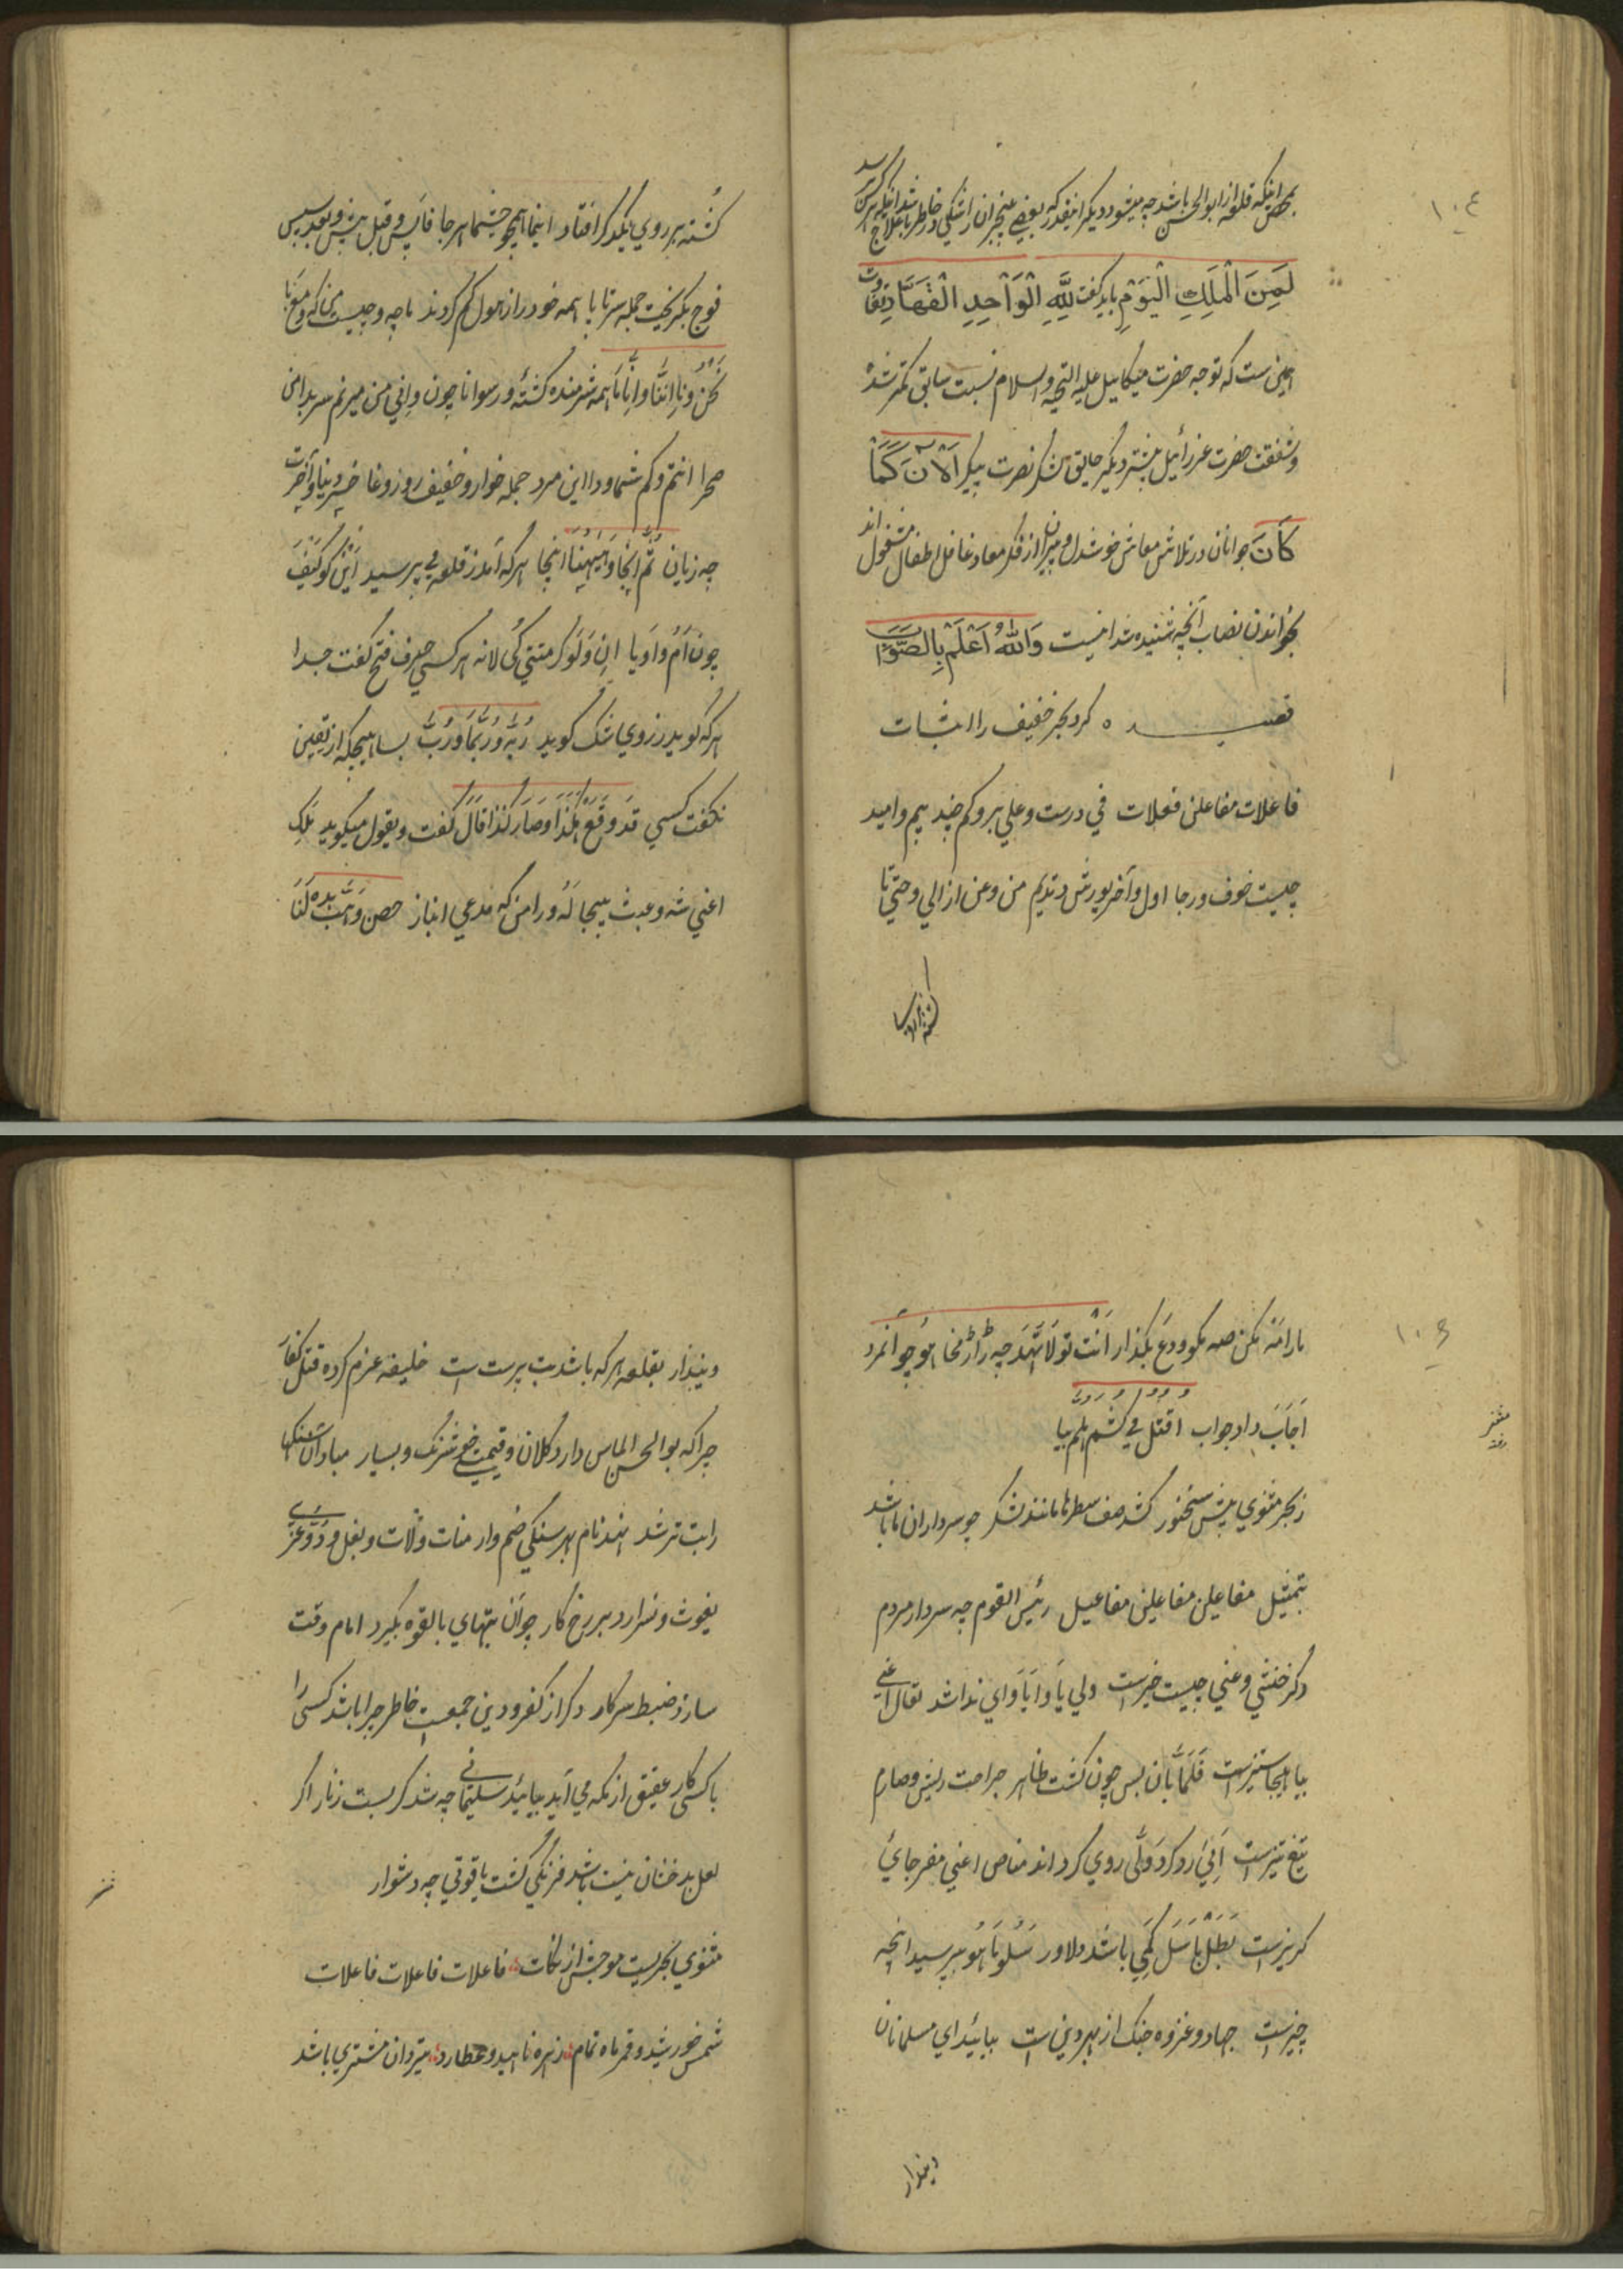 ١٠٤
بمحض اینکه قلعه از ابوالحسن باشد چه میشود دیگر اینقدر که بعضی بیخبران را شکی در خاطر باشد اینکه علاج هرکس
لِمَنِ الْمُلْكُ الْيَوْمَ باید گفت لِلَّهِ الْوَاحِدِ الْقَهَّارِ تفاوت
همین ست که توجه حضرت میکاییل علیه التحیه والسلام نسبت سابق کمتر شد
وشفقت حضرت عزرائیل بیشتر دیگر حایق لشکر نصرت پیکر اَلآنَ كَمَا
كَانَ جوانان در تلاش معاش خوشدل و پیران از فکر معاد غافل اطفال مشغول اند
بخواندن نصاب آنچه شنیده شد اینست وَاللهُ اَعْلَمُ بِالصَّوَابِ
قصیده کرد بحر خفیف را اثبات
فاعلات مفاعلن فعلات في درست وعلي بر وکم چند بیم وامید
چیست خوف ورجا اول وآخر پورش وتدیم من وعن از الي وحتي تا
کشته بر روي یکدگر افتاد اینما همچو حیثما هرجا فا پس وقبل پیش وبعد سپس
فوج بگریخت جمله سرتا پا همه خود را ز هول گم کردند ما چه وچیست من که ومع با
نحن ونا اننا وانا ما همه شرمنده گشته ورسوا نا چون واني من میزنم سر بدامن
صحرا انتم وکم شما وذا این مرد جمله خوار وخفیف روز وغا خسر دنیا وآخرت
چه زیان ثُمَّ آنجا وهیهنا اینجا هرکه آمد ز قلعه مي پرسید این کو کیف
چون اَم واَو یا اِن ولَو گر متي کي لا نه هر کسي حرف فتح گفت جدا
هرکه گوید ز روي شک گوید رُبَّه ورُبَّما ورُبَّ بسا هیچکه از یقین
نگفت کسي قَد وَقَعَ هكذا وصار كذا قال گفت ویقول میگوید تلک
اغني شه وعبث بیجا له ورا من که مدعي انباز حصن وهب بده لَنَا
١٠٥
مارا مَه مکن صه مگو ودَع بگذار اَنت تو
اَجَابَ داد جواب اُقتُل مي کُشم هلم بیا
ز بحر مثنوي پیش سخنور کشد صف سطرها مانند لشکر چو سرداران ما باشد
بتمثیل مفاعیلن مفاعیلن مفاعیل رئیس القوم چه سردار مردم
دگر خنثي وعني چیست خیزست ولي یا وایا واي نداشد تعال اغني
بیا اینجا ستیزست فلما بان پس چون گشت ظاهر جراحت ریش وصارم
تیغ تیزست اَتی رو کرد ولّی روي گرداند مناص اعني مفر جاي
گریزست بَطَل باسل کمي باشد دلاور سلوا هو بپرسید انچه
چیزست جهاد وغزوه جنگ از بهر دین است بیایید اي مسلمانان
دیندار
دیندار بقلعه هرکه باشد بت پرست است خلیفه عزم کرده قتل کفار
چرا که بوالحسن الماس دارد کلان وقیمتي خوشرنگ وبسیار مبادا آن سنگها
را بت تراشد نهد نام هر سنگي صنم وار منات ولات وبعل و ود وعزی
یغوث ونسر ارد بر رخ کار چو آن بتهاي بالقوه بگیرد امام وقت
سازد ضبط سرکار دگر از کفر ودین جمعیت خاطر چرا باشد کسی را
با کسی کار عقیق از مکه مي آید بیایید سلیماني چه شد گر بست زنار اگر
لعل بدخشان نیست باشد فرنگي گشت یاقوتي چه دشوار
مثنوي بحریست موجش از نکات فاعلات فاعلات فاعلات
شمس خورشید وقمر ماه تمام زهره ناهید وعطارد تیر دان مشتري باشد